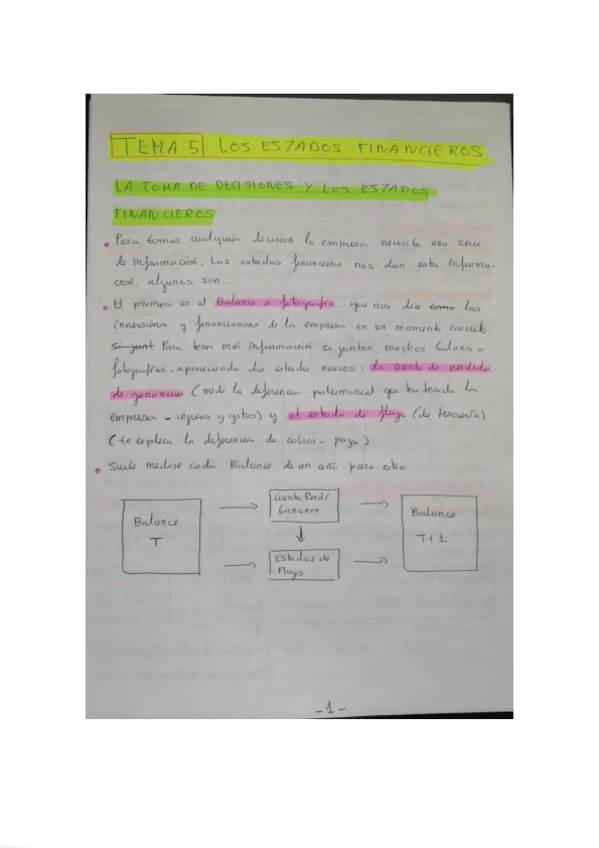 TEMA 5: LOS ESTADOS FINANCIEROS
LA TOMA DE DECISIONES Y LOS ESTADOS
FINANCIEROS
Para tomar cualquier decisión la empresa necesita una serie
de información. Los estados financieros nos dan esta informa-
ción. algunos son..
El primero es el Balance o fotografía que nos dice como las
inversiones y financiaciones de la empresa en un momento concreto.
Para tener más información se juntan muchos balances o
fotografías, apareciendo dos estados nuevos: la cuenta de perdida
de ganancias (mide la diferencia patrimonial que ha tenido la
empresa - ingresos y gastos) y el estado de flujo (de tesorería)
(te explica la diferencia de cobros - pagos)
Suele medirse cada Balance de un año para otro
Balance
T
Cuenta Perd/
Ganancias
Estados de
Flujo
Balance
T+1
-1-